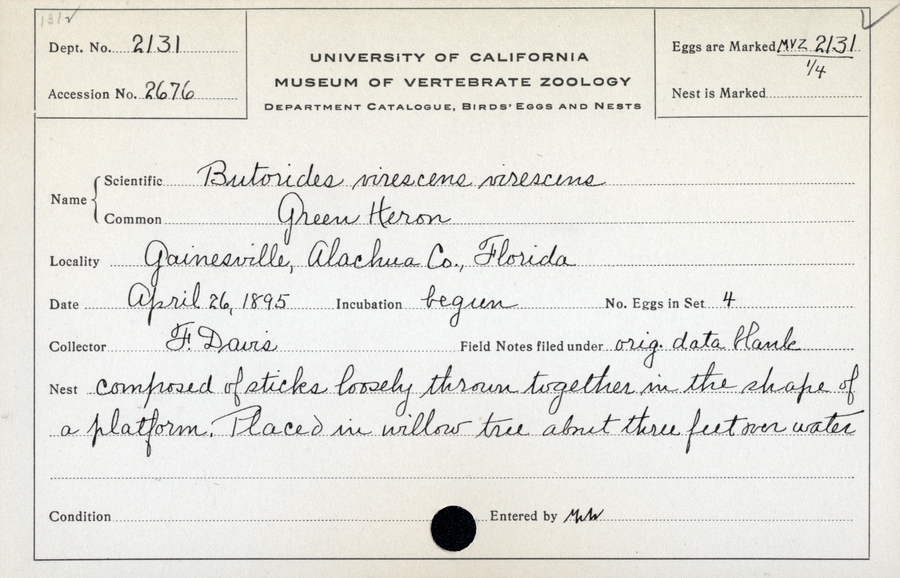 1312
Dept. No. 2131
Accession No. 2676
UNIVERSITY OF CALIFORNIA
MUSEUM OF VERTEBRATE ZOOLOGY
DEPARTMENT CATALOGUE, BIRDS' EGGS AND NESTS
Eggs are Marked MVZ 2131
1/4
Nest is Marked
Name
Scientific Butorides virescens virescens
Common Green Heron
Locality Gainesville, Alachua Co., Florida
Date April 26, 1895 Incubation begun No. Eggs in Set 4
Collector F. Davis Field Notes filed under orig. data blank
Nest composed of sticks loosely thrown together in the shape of
a platform. Placed in willow tree about three feet over water
Condition Entered by